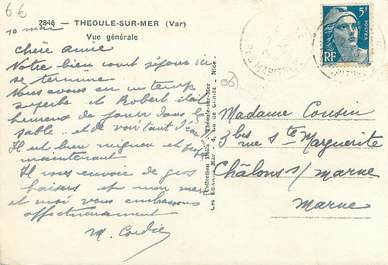 6€
2846 - THEOULE-SUR-MER (Var)
Vue générale
10 mai
Chère amie
Notre bien court séjour ici
se termine
Nous avons eu un temps
superbe et Robert était
heureux de jouer dans
sable.. et de voir tant d'eau
Il est bien mignon et
maintenant
Il vous envoie de gros
baisers et mon mari
et moi vous embrassons
affectueusement
M. Cordié
06
5F
POSTES
RF
Madame Cousin
3 bis rue Ste Marguerite
Châlons s/ marne
Marne